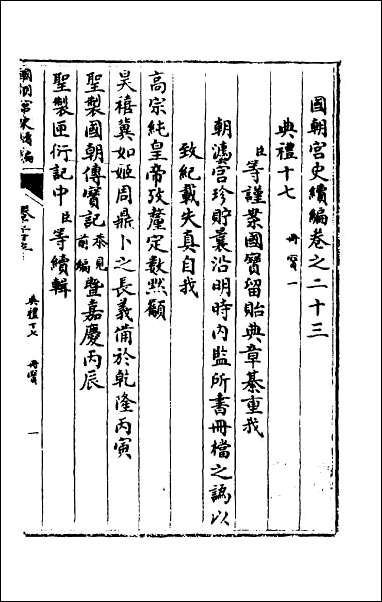 國朝宮史續編卷之二十三
典禮十七 冊寶一
臣等謹案國寶留貽典章綦重我
朝瀛宮珍貯曩沿明時內監所書冊檔之譌以
致紀載失真自我
高宗純皇帝攷釐定數煕顧
昊禧冀如姬周鼎卜之長義備於乾隆丙寅
聖製國朝傳寶記恭見前編暨嘉慶丙辰
聖製匣衍記中臣等續輯
國朝宮史續編 卷二十三 典禮十七 冊寶 一